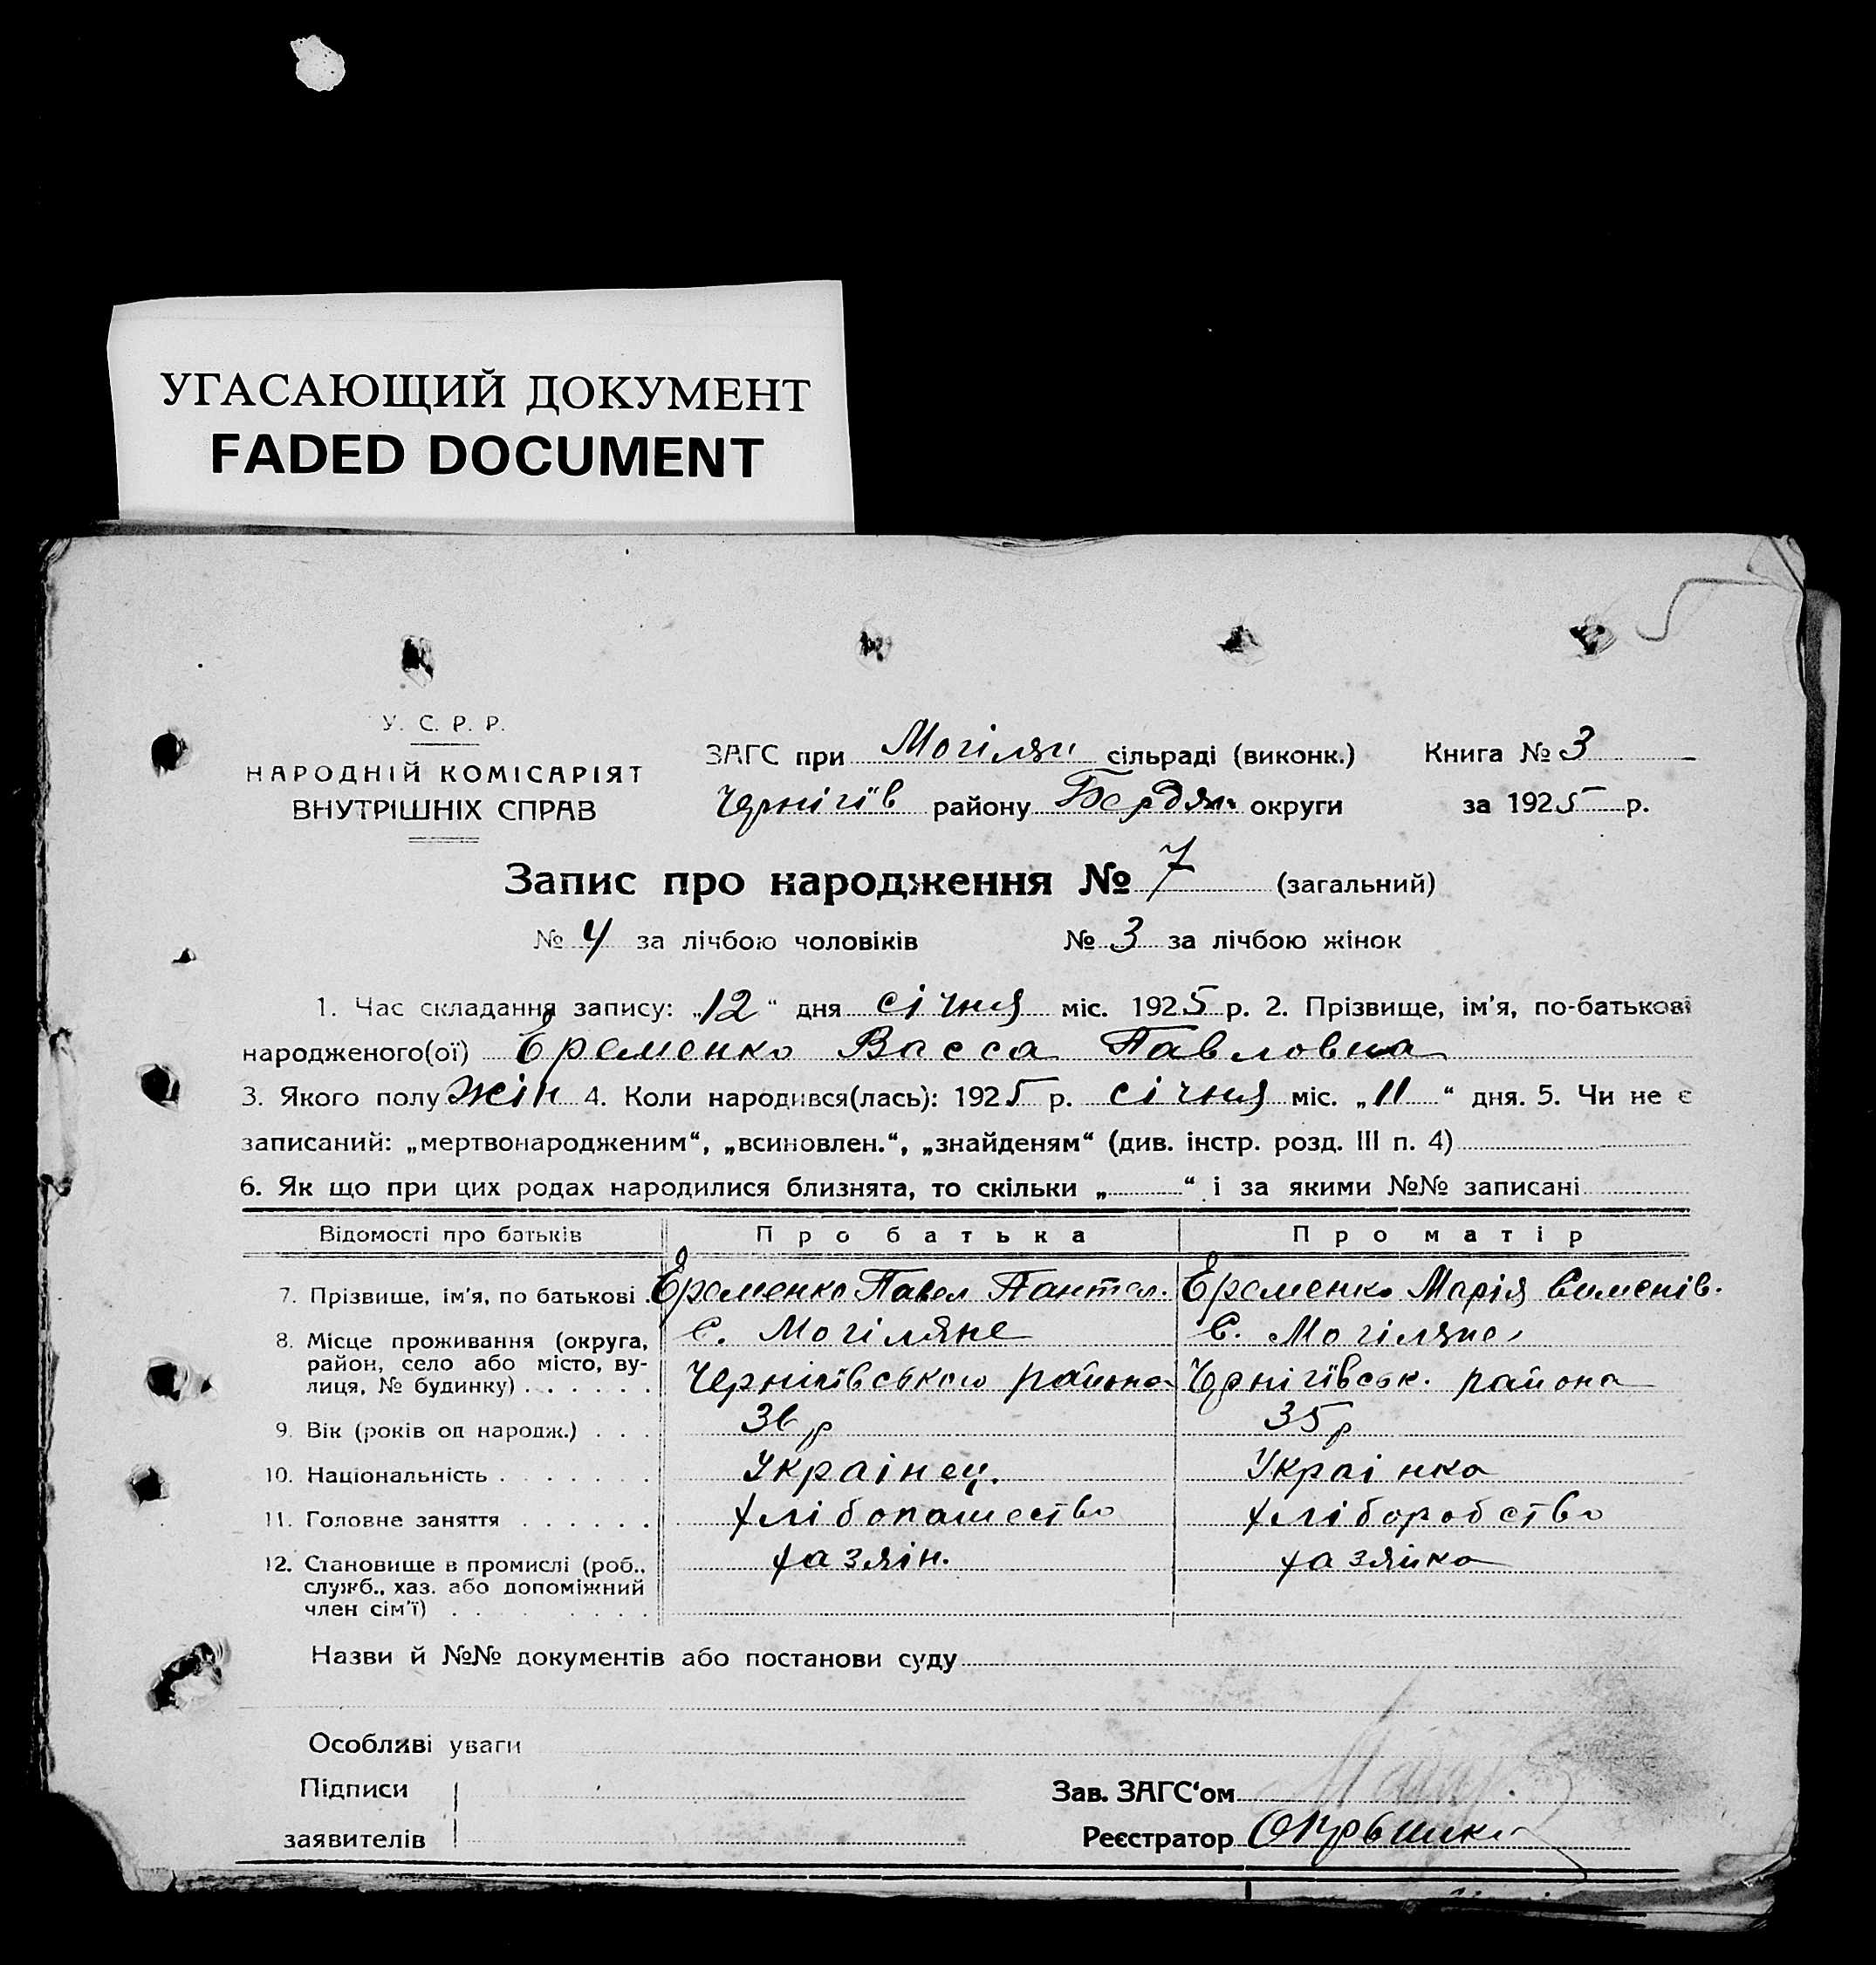 УГАСАЮЩИЙ ДОКУМЕНТ
FADED DOCUMENT
У. С. Р. Р.
НАРОДНІЙ КОМІСАРІЯТ
ВНУТРІШНІХ СПРАВ
ЗАГС при Могілян сільраді (виконк.) Книга № 3
Чернігів району Бердян. округи за 1925 р.
Запис про народження № 7 (загальний)
№ 4 за лічбою чоловіків № 3 за лічбою жінок
1. Час складання запису: „12“ дня січня міс. 1925 р. 2. Прізвище, ім'я, по-батькові
народженого(ої) Ёременко Васса Павловна
3. Якого полу жін 4. Коли народився(лась): 1925 р. січня міс. „11“ дня. 5. Чи не є
записаний: „мертвонародженим“, „всиновлен.“, „знайденям“ (див. інстр. розд. III п. 4)
6. Як що при цих родах народилися близнята, то скільки „ “ і за якими №№ записані
Відомості про батьків Про батька Про матір
7. Прізвище, ім'я, по батькові . Ёременко Павел Пантел. Ёременко Марія Сименів.
8. Місце проживання (округа, С. Могіляне С. Могіляне
район, село або місто, ву-
лиця, № будинку) . . . . . . Чернігівського района Чернігівськ. района
9. Вік (років од народж.) . . . 36 р 35 р
10. Національність . . . . . . . Украінец. Украінка
11. Головне заняття . . . . . . хлібопашество хлiборобство
12. Становище в промислі (роб., хазяін. хазяйка
служб., хаз. або допоміжний
член сім'ї) . . . . . . . .
Назви й №№ документів або постанови суду
Особливі уваги
Підписи Зав. ЗАГС‘ом
заявителів Реєстратор